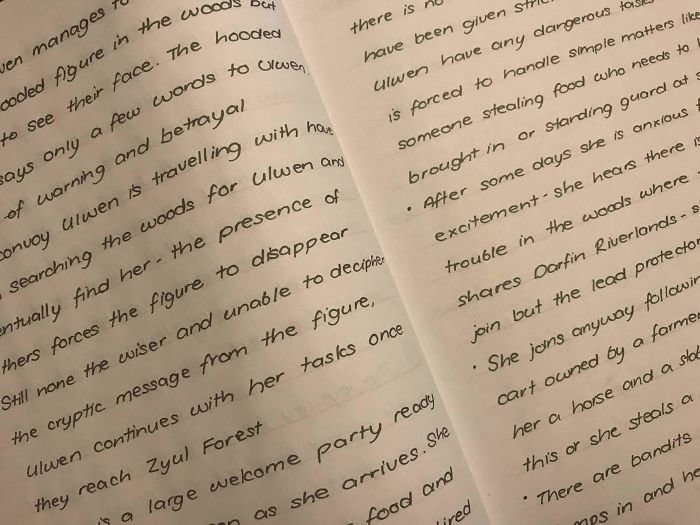 manages to
figure in the woods but
to see their face. The hooded
says only a few words to Ulwen
of warning and betrayal
convoy Ulwen is travelling with have
searching the woods for Ulwen and
find her - the presence of
forces the figure to disappear
Still none the wiser and unable to decipher
the cryptic message from the figure,
Ulwen continues with her tasks once
they reach Zyul Forest
is a large welcome party ready
as she arrives. She
food and
there is no
have been given
Ulwen have any dangerous
is forced to handle simple matters like
someone stealing food who needs to
brought in or standing guard at
• After some days she is anxious
excitement - she hears there is
trouble in the woods where
shares Darfin Riverlands -
join but the lead
• She joins anyway
cart owned by a farmer
her a horse and a
this or she steals a
• There are bandits
in and